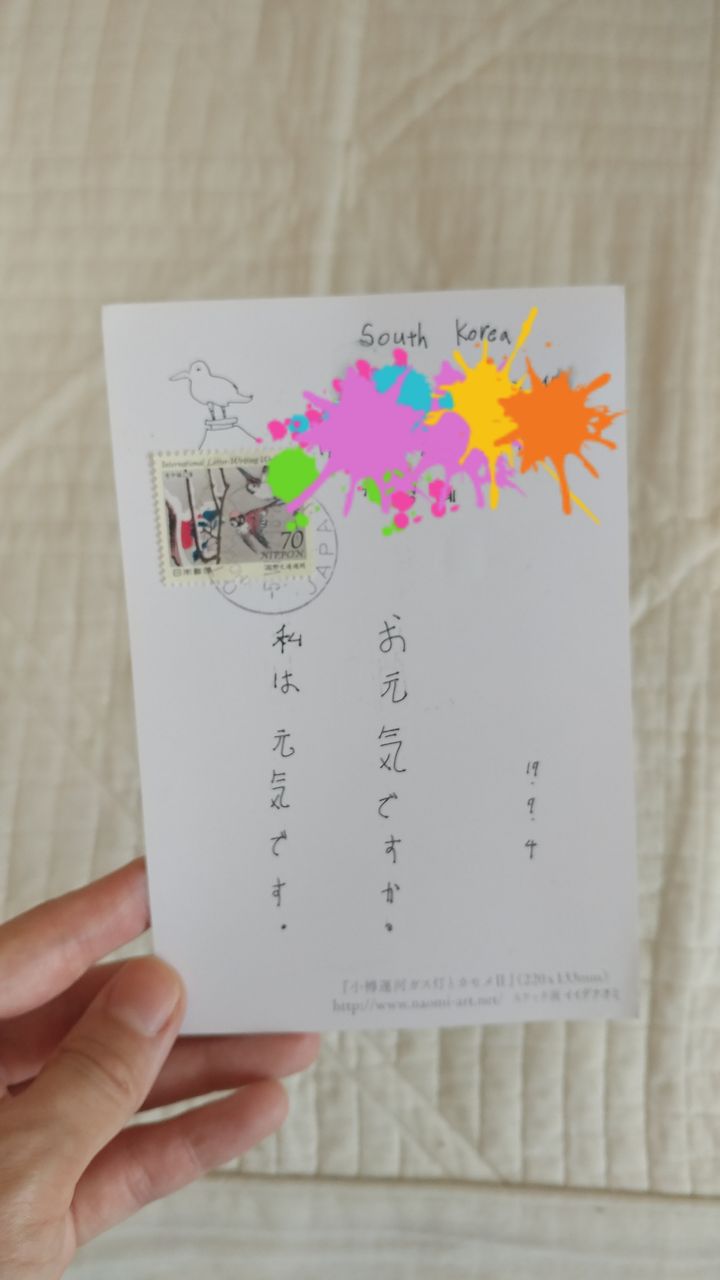 South Korea
International Letter-Writing
70
NIPPON
日本郵便
JAPA
19.9.4
お元気ですか.
私は元気です.
『小樽運河ガス灯とカモメⅡ』(220x133mm)
http://www.naomi-art.net/ エッチング版 イイダナオミ